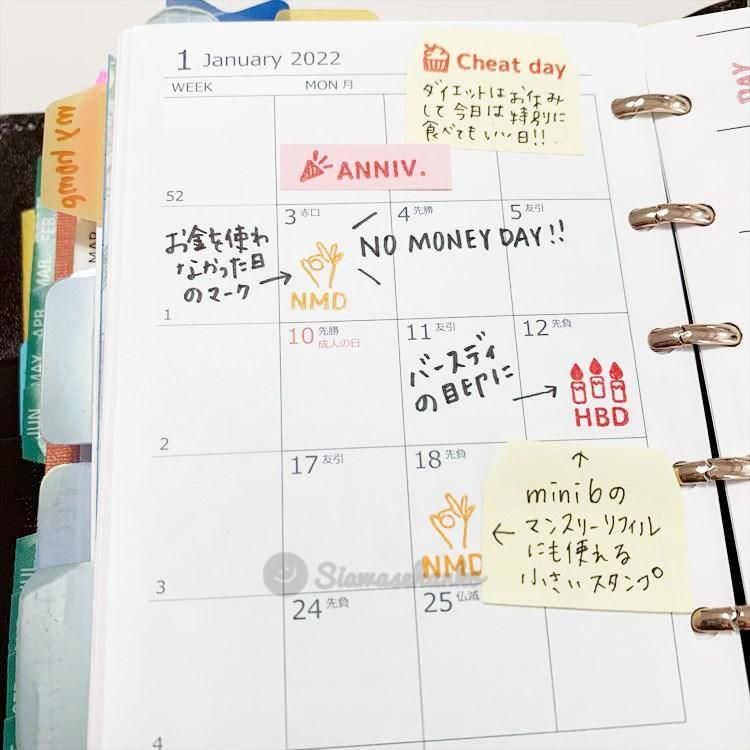 1 January 2022
WEEK
MON 月
Cheat day
ダイエットはお休み
して今日は特別に
食べてもいい日!!
ANNIV.
52
3 赤口
4 先勝
5 友引
お金を使わ
なかった日
のマーク
NO MONEY DAY!!
NMD
1
10 先勝
成人の日
11 友引
12 先負
バースディ
の目印に
HBD
2
17 友引
18 先負
mini6の
マンスリーリフィル
にも使える
小さいスタンプ
NMD
3
24 先負
25 仏滅
4
DAY
FEB.
MAR.
APR.
MAY
JUN
MAR